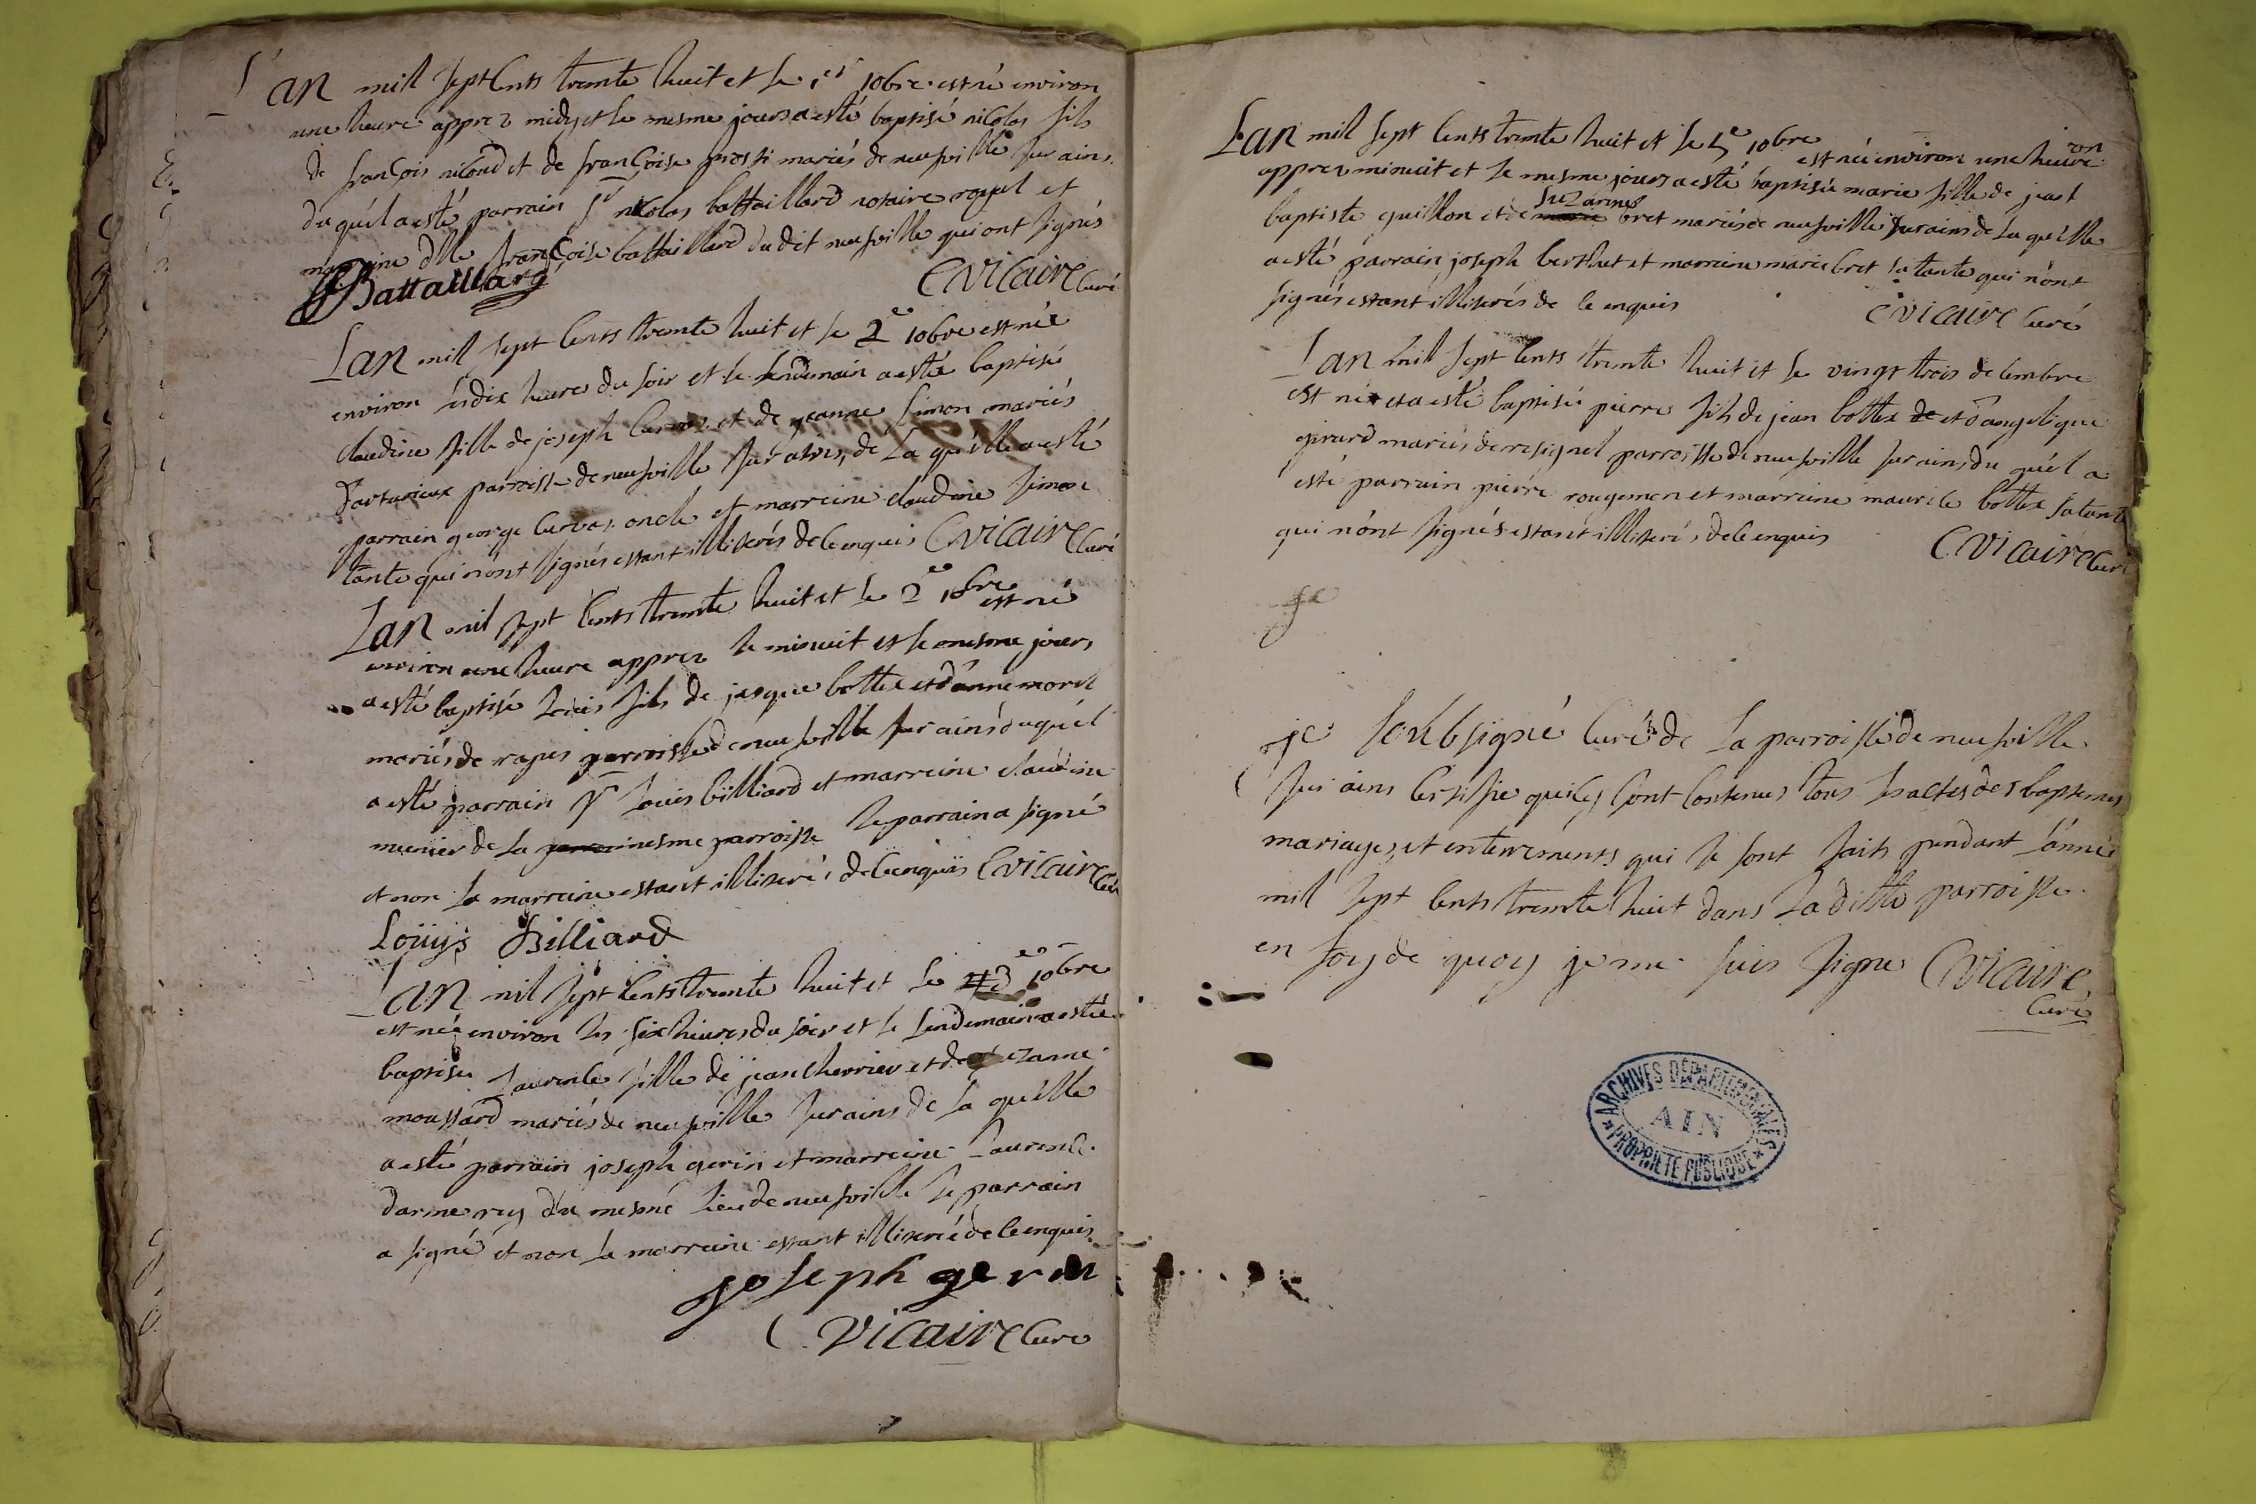 L'an mil sept cents trente huit et le 1er 10bre est né environ
une heure apprez midy et le mesme jours a esté baptisé nicolas fils
de françois nicoud et de françoise prosti mariés de neufville sur ains
du quél a esté parrain sr nicolas battaillard notaire royal et
marreine dlle françoise battaillard dudit neufville qui ont signés
Battaillard
C vicaire Curé
Lan mil sept cents trente huit et le 2e 10bre est née
environ lés dix heure du soir et le lendemain a esté baptisé
claudine fille de joseph et de jeanne simon mariés
parroisse de neufville sur ains, de la quélle a esté
parrain george oncle et marreine claudine simon
tante qui n'ont signés estant illiterés de ce enquis C vicaire Curé
Lan mil sept cents trente huit et le 2e 10bre est né
environ une heure apprez le minuit et le mesme jours
a esté baptisé Louis fils de jacque bottex et d'anne morel
mariés de rapes parroisse de neufville sur ains du quél
a esté parrain sr Louis billiard et marreine claudine
munier de la mesme parroisse le parrain a signé
et non la marreine estant illiterée de ce enquis C vicaire Curé
Loüys Billiard
L'an mil sept cents trente huit et le 3e 10bre
est née environ les six heures du soir et le lendemain a esté
baptisée Laurence fille de jean cherrier et de suzanne
moussard mariés de neufville sur ains de la quélle
a esté parrain joseph gerin et marreine Laurence
darmerey du mesme lieu de neufville le parrain
a signé et non la marreine estant illiterée de ce enquis
joseph gerin
C vicaire Curé
Lan mil sept cents trente huit et le 5e 10bre est née environ une heure
apprez minuit et le mesme jours a esté baptisée marie fille de jean
baptiste guillon et de suzanne bret mariés de neufville sur ains de la quélle
a esté parrain joseph berthet et marreine marie bret sa tante qui n'ont
signés estant illiterés de ce enquis
C vicaire Curé
Lan mil sept cents trente huit et le vingt trois decembre
est né et a esté baptisé pierre fils de jean bottex et d'angelique
girard mariés de resignel parroisse de neufville sur ains, du quél a
esté parrain pierre rougemon et marreine maurice bottex sa tante
qui n'ont signés estant illiterés de ce enquis
C vicaire Curé
je
je soubsigné curé de la parroisse de neufville
sur ains certifie que icy sont contenus tous les actes des baptemes
mariages, et enterrements qui se sont faits pendant l'année
mil sept cents trente huit dans la ditte parroisse
en foy de quoy je me suis signe C vicaire
Curé
ARCHIVES DÉPARTEMENTALES
AIN
PROPRIÉTÉ PUBLIQUE